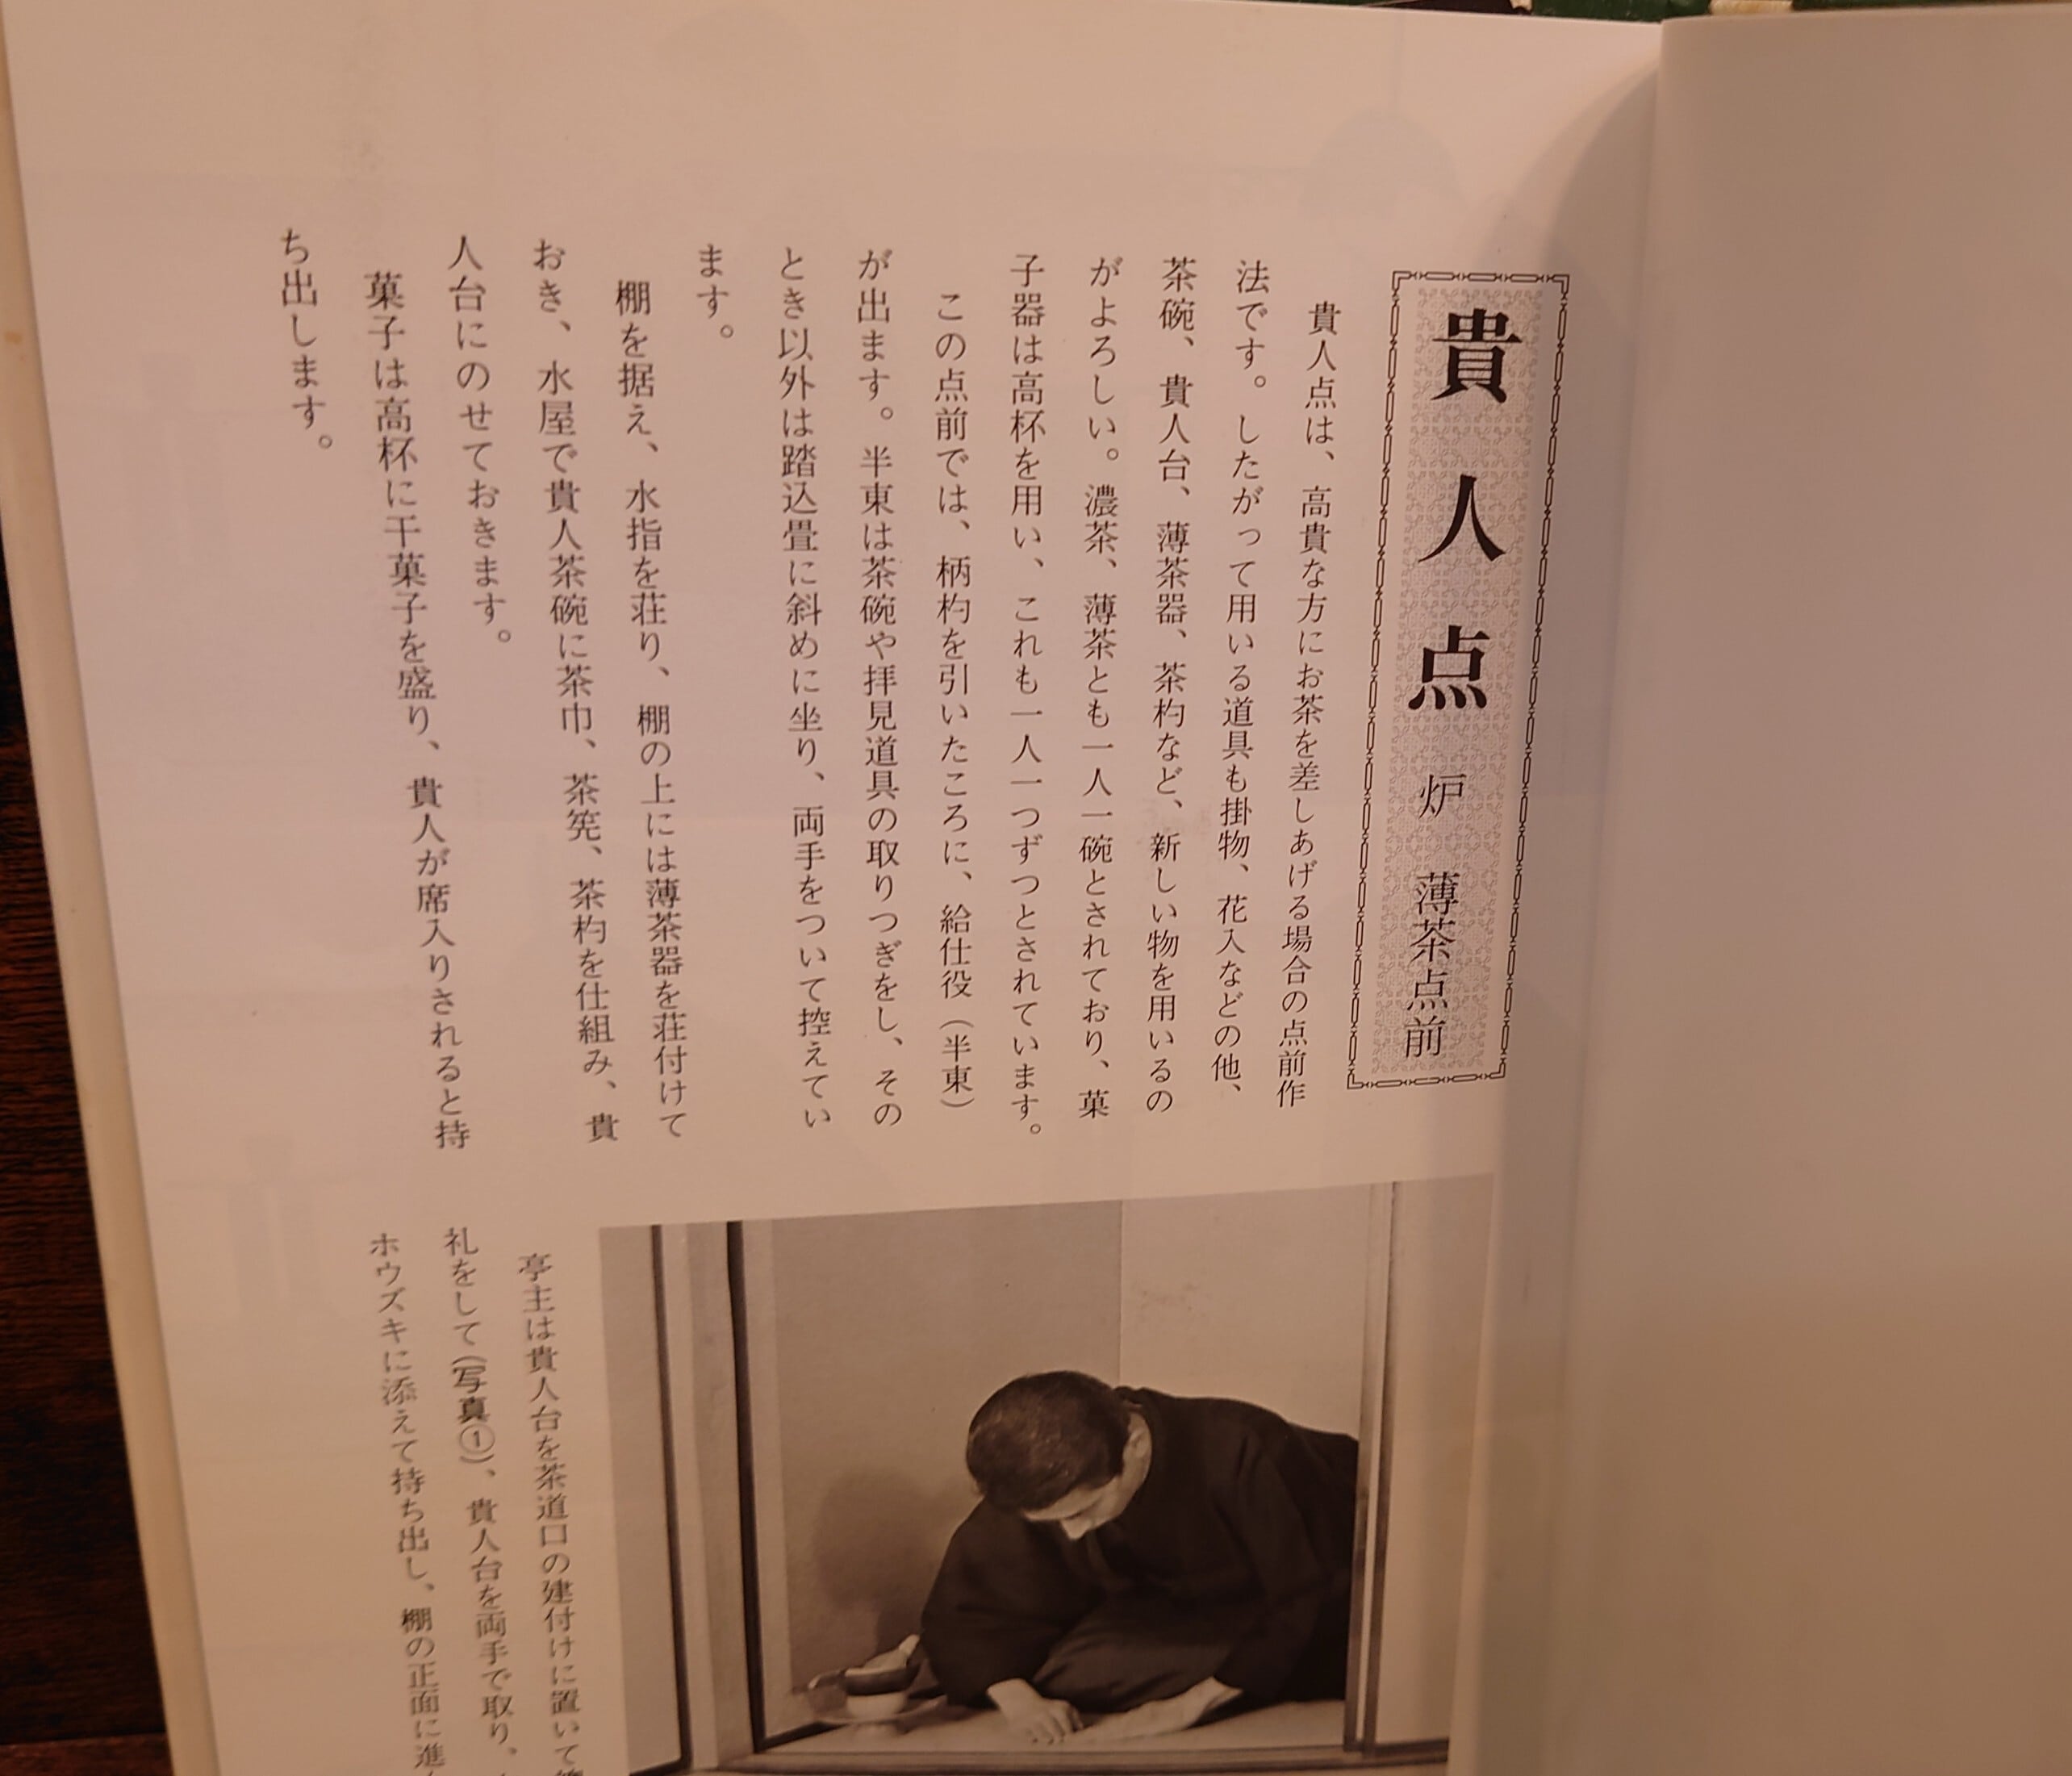 貴人点 炉 薄茶点前
貴人点は、高貴な方にお茶を差しあげる場合の点前作
法です。したがって用いる道具も掛物、花入などの他、
茶碗、貴人台、薄茶器、茶杓など、新しい物を用いるの
がよろしい。濃茶、薄茶とも一人一碗とされており、菓
子器は高杯を用い、これも一人一つずつとされています。
この点前では、柄杓を引いたころに、給仕役（半東）
が出ます。半東は茶碗や拝見道具の取りつぎをし、その
とき以外は踏込畳に斜めに坐り、両手をついて控えてい
ます。
棚を据え、水指を荘り、棚の上には薄茶器を荘付けて
おき、水屋で貴人茶碗に茶巾、茶筅、茶杓を仕組み、貴
人台にのせておきます。
菓子は高杯に干菓子を盛り、貴人が席入りされると持
ち出します。
亭主は貴人台を茶道口の建付けに置いて
礼をして（写真①）、貴人台を両手で取り、
ホウズキに添えて持ち出し、棚の正面に進